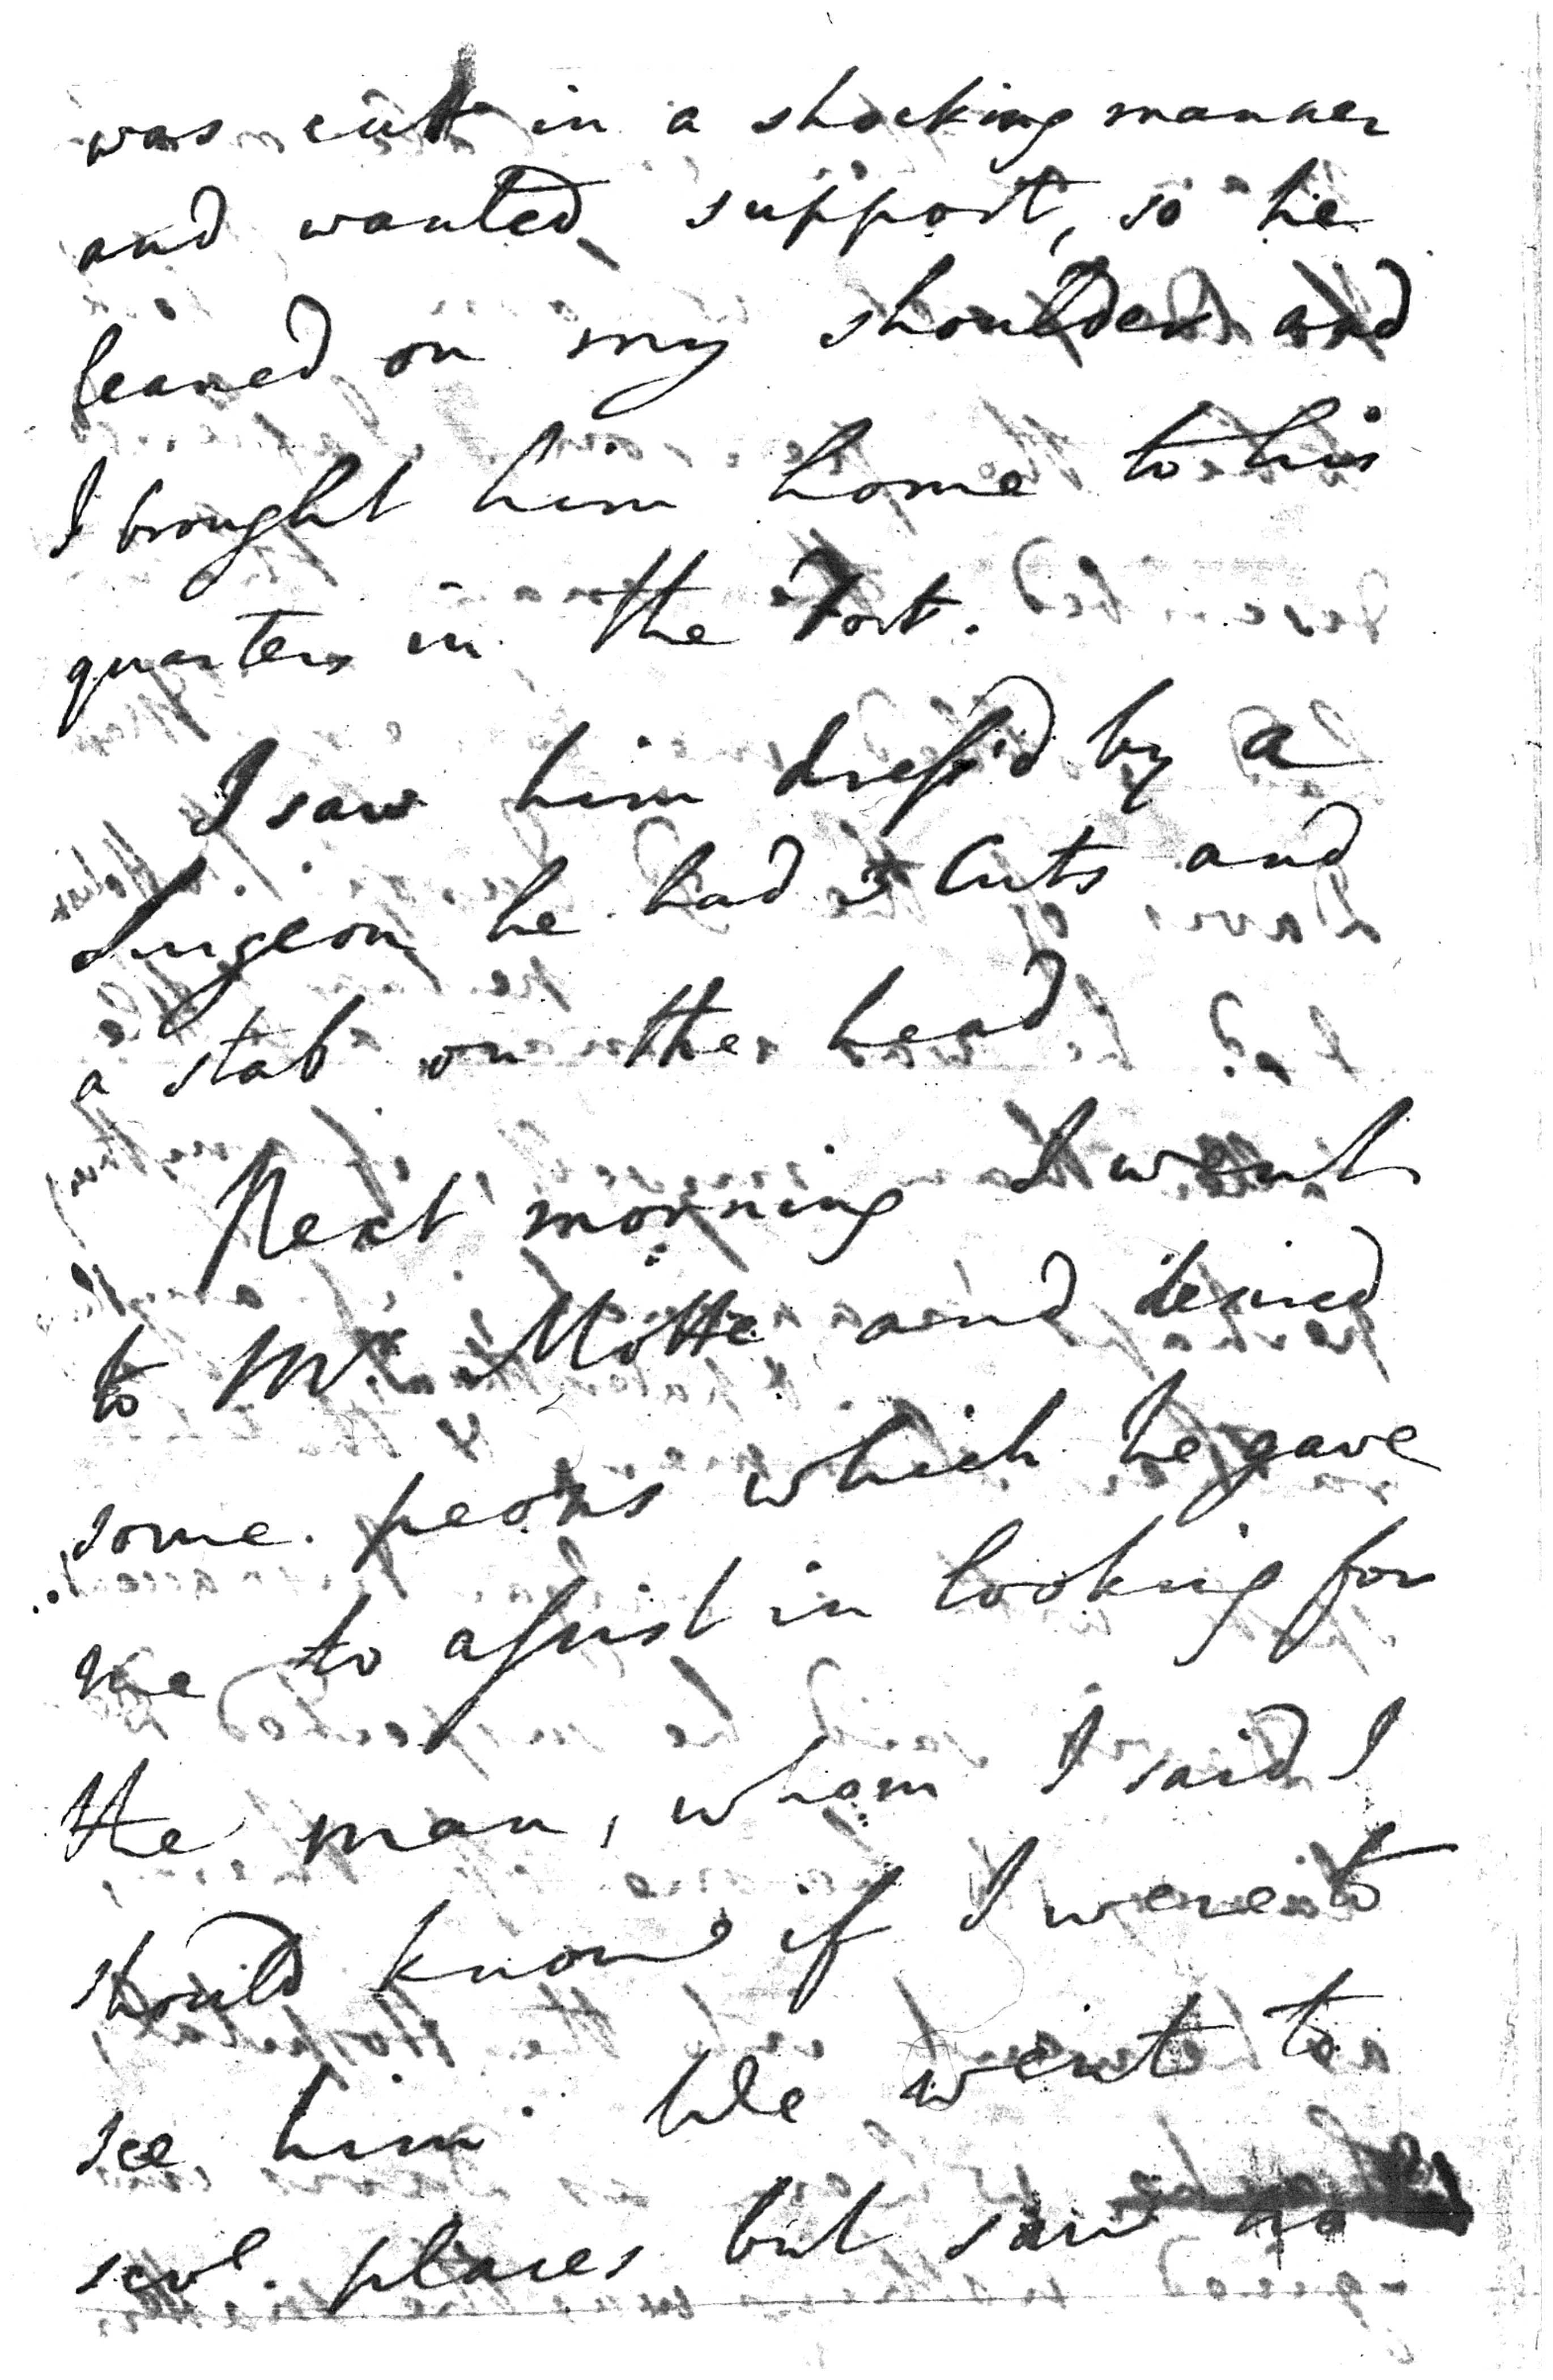 was cut in a shocking manner
and wanted support, so he
leaned on my shoulder and
I brought him home to his
quarters in the Fort.
I saw him dress'd by a
Surgeon he had 3 Cuts and
a stab on the head
Next morning I went
to Mr. Motte and desired
some peons which he gave
me to assist in looking for
the man, whom I said I
should know if I were to
see him We went to
sevl. places but saw no